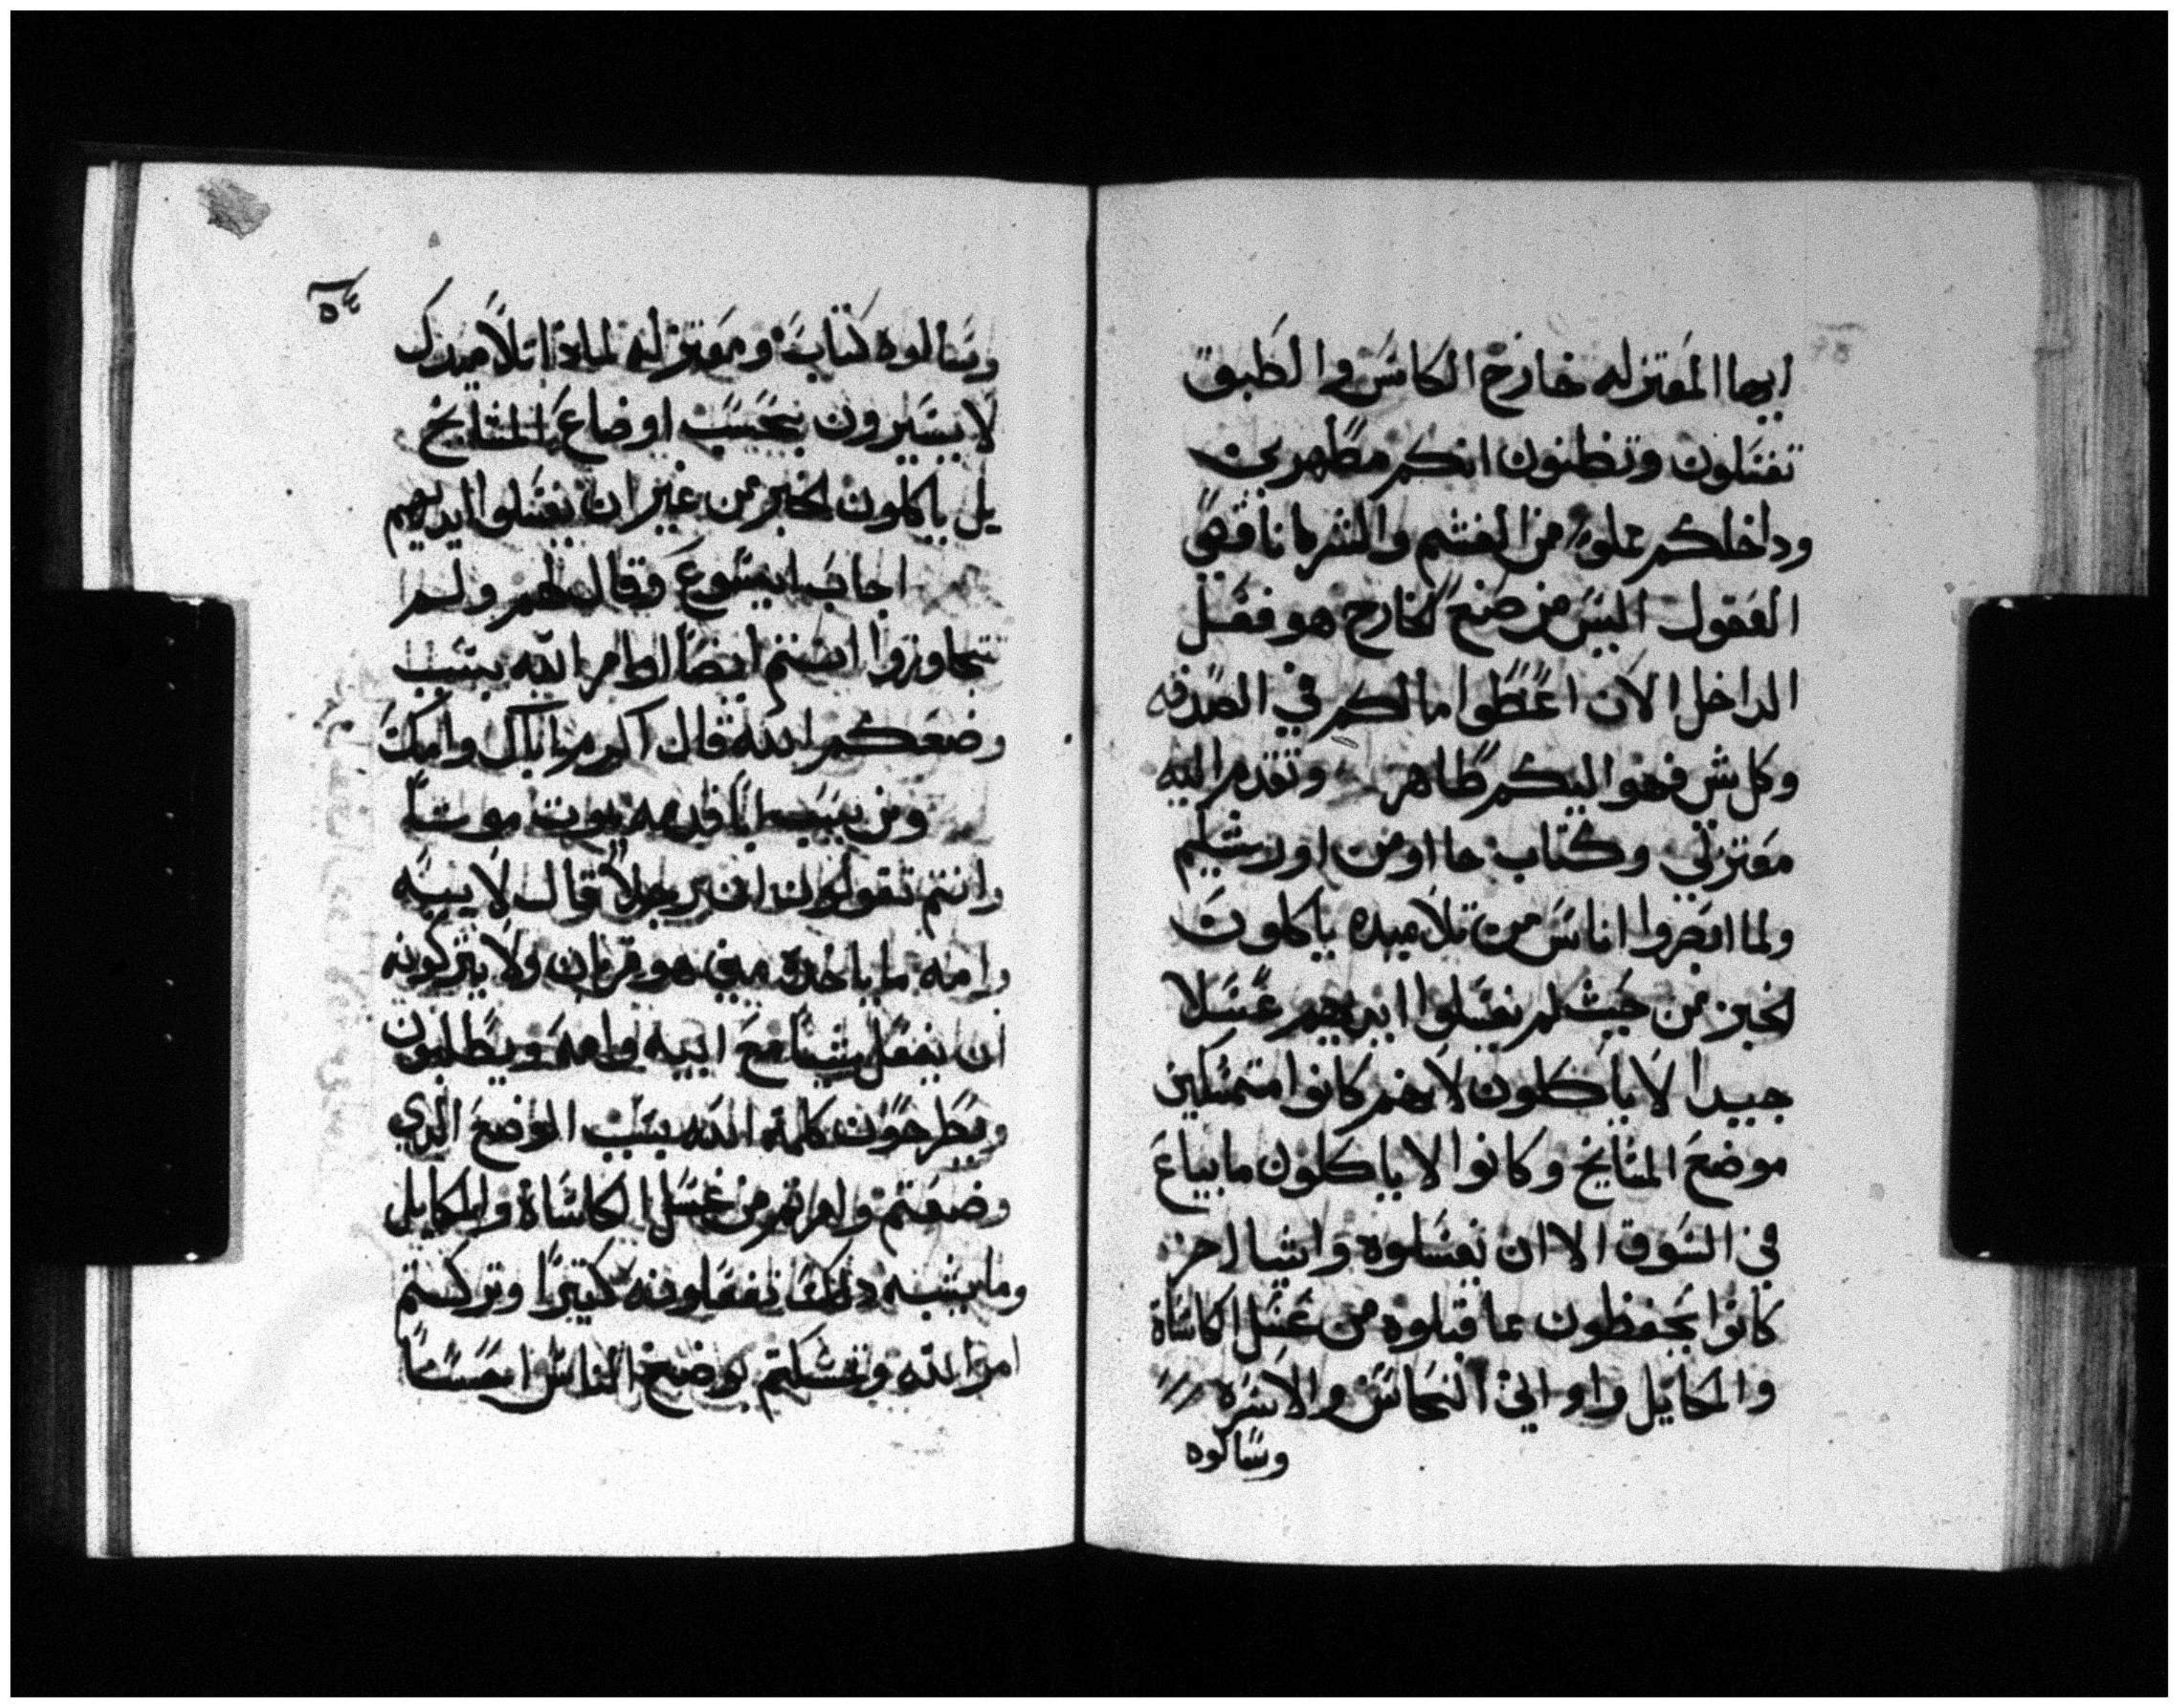 ايها المعتزله خارج الكاس والطبق
تغسلون وتظنون انكم مطهرين
وداخلكم مملوه من الغشم والشر يا ناقصي
العقول اليس من صنع الخارج هو فعل
الداخل الان اعطوا مالكم في الصدقه
وكل شي فهو اليكم طاهر وتقدم اليه
معتزلي وكتاب جاا ومن اورشليم
ولما ابصروا اناس من تلاميده ياكلون
لخبز من حيث لم يغسلوا ايديهم غسلا
جيدا لا ياكلون لانهم كانوا متمسكين
موضع المشايخ وكانوا لا ياكلون ما يباع
في السوق الا ان يغسلوه واشيا اخر
كانوا يحفظون مما قبلوه من غسل الكاساة
والمكاييل واواني النحاس والاسره
وسالوه
٥٤
وسالوه كتاب ومعتزله لمادا تلاميدك
لا يسيرون بحسب اوضاع المشايخ
بل ياكلون لخبز من غير ان يغسلوا ايديهم
اجاب ايسوع وقال لهم ولم
تتجاوزوا انتم ايضا اوامر الله بسبب
وضعكم الله قال اكرم اباك وامك
ومن يسب اباه وامه يموت موتا
وانتم تقولون ان رجلا قال لابيه
وامه ما ياخده مني هو قربان ولا يتركونه
ان يفعل شيا مع ابيه وامه ويطلبون
ويطرحون كلمة الله بسبب الموضع الدي
وضعتم وامرتم من غسل الكاساة والمكاييل
وما يشبه دلك تفعلونه كتيرا وتركتم
امر الله وتمسكتم بوضع الناس احسنا